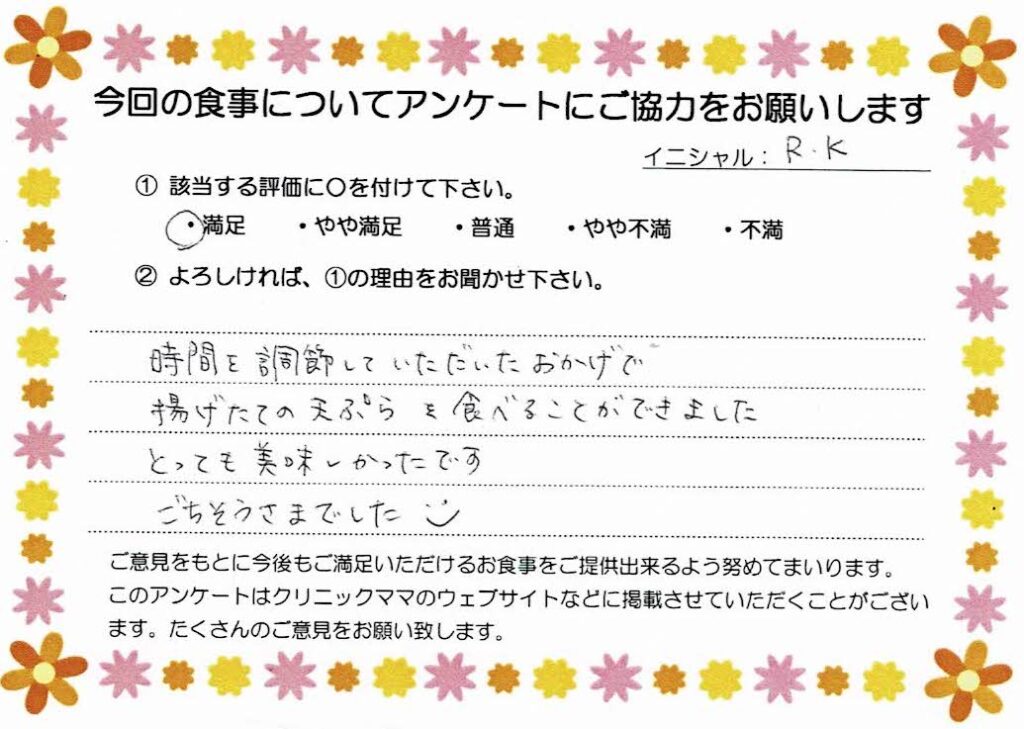 今回の食事についてアンケートにご協力をお願いします
イニシャル： R.K
① 該当する評価に〇を付けて下さい。
・満足 ・やや満足 ・普通 ・やや不満 ・不満
② よろしければ、①の理由をお聞かせ下さい。
時間を調節していただいたおかげで
揚げたての天ぷらを食べることができました
とっても美味しかったです
ごちそうさまでした
ご意見をもとに今後もご満足いただけるお食事をご提供出来るよう努めてまいります。
このアンケートはクリニックママのウェブサイトなどに掲載させていただくことがござい
ます。たくさんのご意見をお願い致します。